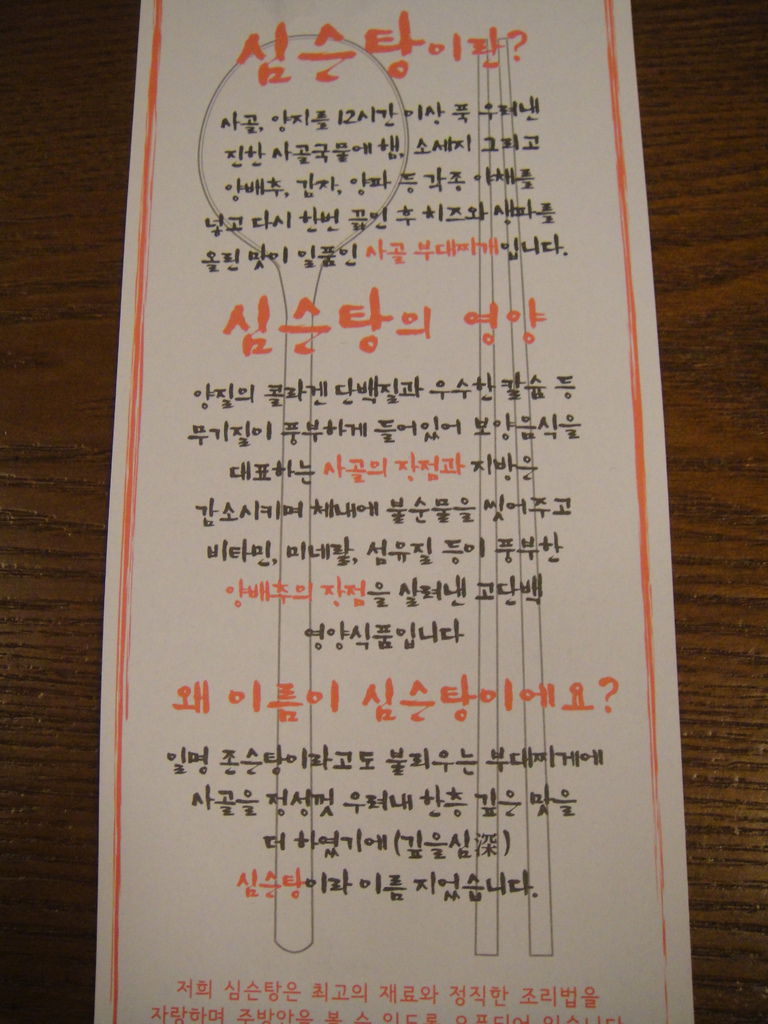 심슨탕이란?
사골, 양지를 12시간 이상 푹 우려낸
진한 사골국물에 햄, 소세지 그리고
양배추, 감자, 양파 등 각종 야채를
넣고 다시 한번 끓인 후 치즈와 생파를
올린 맛이 일품인 사골 부대찌개입니다.
심슨탕의 영양
양질의 콜라겐 단백질과 우수한 칼슘 등
무기질이 풍부하게 들어있어 보양음식을
대표하는 사골의 장점과 지방은
감소시키며 체내에 불순물을 씻어주고
비타민, 미네랄, 섬유질 등이 풍부한
양배추의 장점을 살려낸 고단백
영양식품입니다
왜 이름이 심슨탕이에요?
일명 존슨탕이라고도 불리우는 부대찌게에
사골을 정성껏 우려내 한층 깊은 맛을
더 하였기에 (깊을심深)
심슨탕이라 이름 지었습니다.
저희 심슨탕은 최고의 재료와 정직한 조리법을
자랑하며 주방안을 볼 수 있도록 오픈되어 있습니다